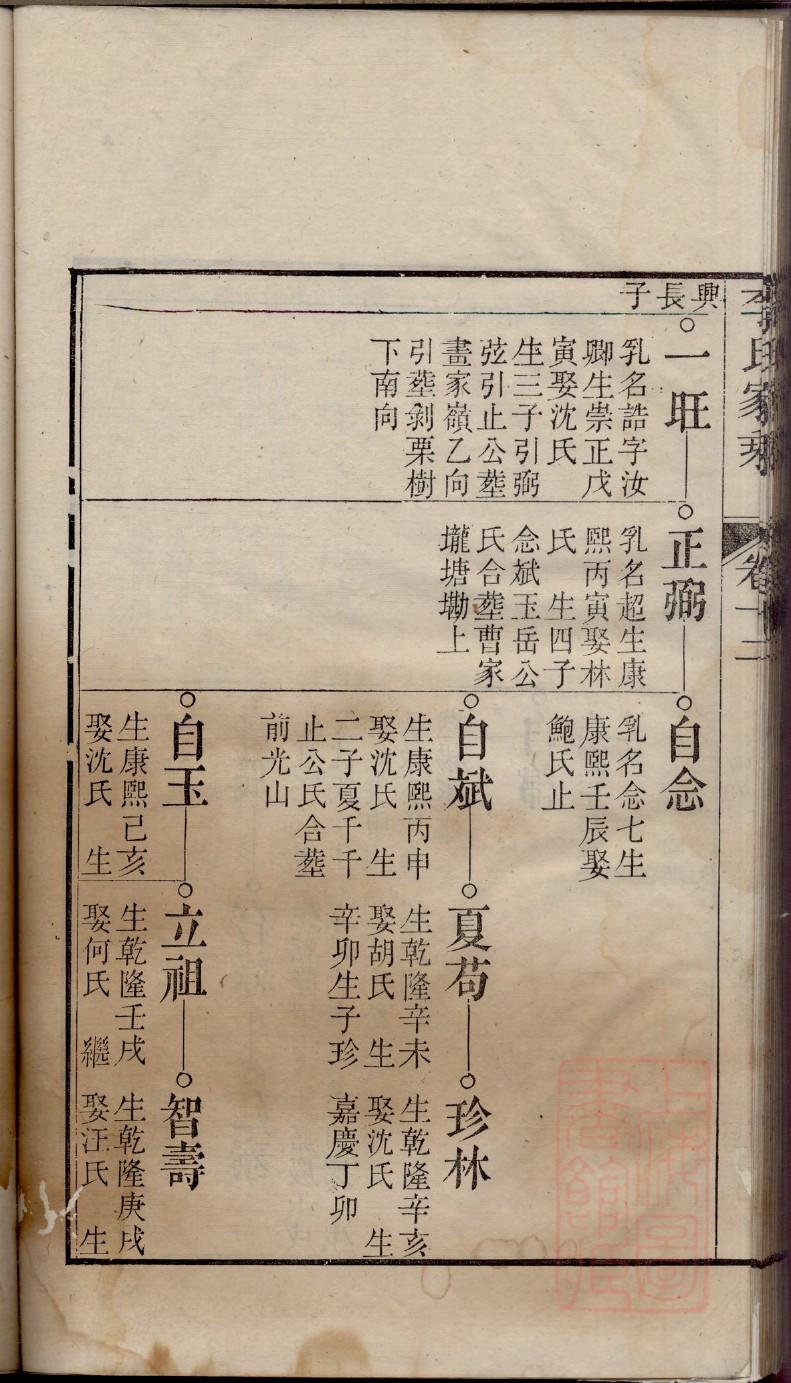 李氏家乘
卷十二
興長子
一旺
乳名誥字汝
卿生崇正戊
寅娶沈氏
生三子引弼
弦引止公塟
畫家嶺乙向
引塟剝栗樹
下南向
正弼
乳名超生康
熙丙寅娶林
氏　生四子
念斌玉岳公
氏合塟曹家
壠塘塝上
自念
乳名念七生
康熙壬辰娶
鮑氏止
自斌
生康熙丙申
娶沈氏　生
二子夏千千
止公氏合塟
前光山
夏苟
生乾隆辛未
娶胡氏　生
辛卯生子珍
珍林
生乾隆辛亥
娶沈氏　生
嘉慶丁卯
自玉
生康熙己亥
娶沈氏　生
立祖
生乾隆壬戌
娶何氏　繼
智壽
生乾隆庚戌
娶汪氏　生